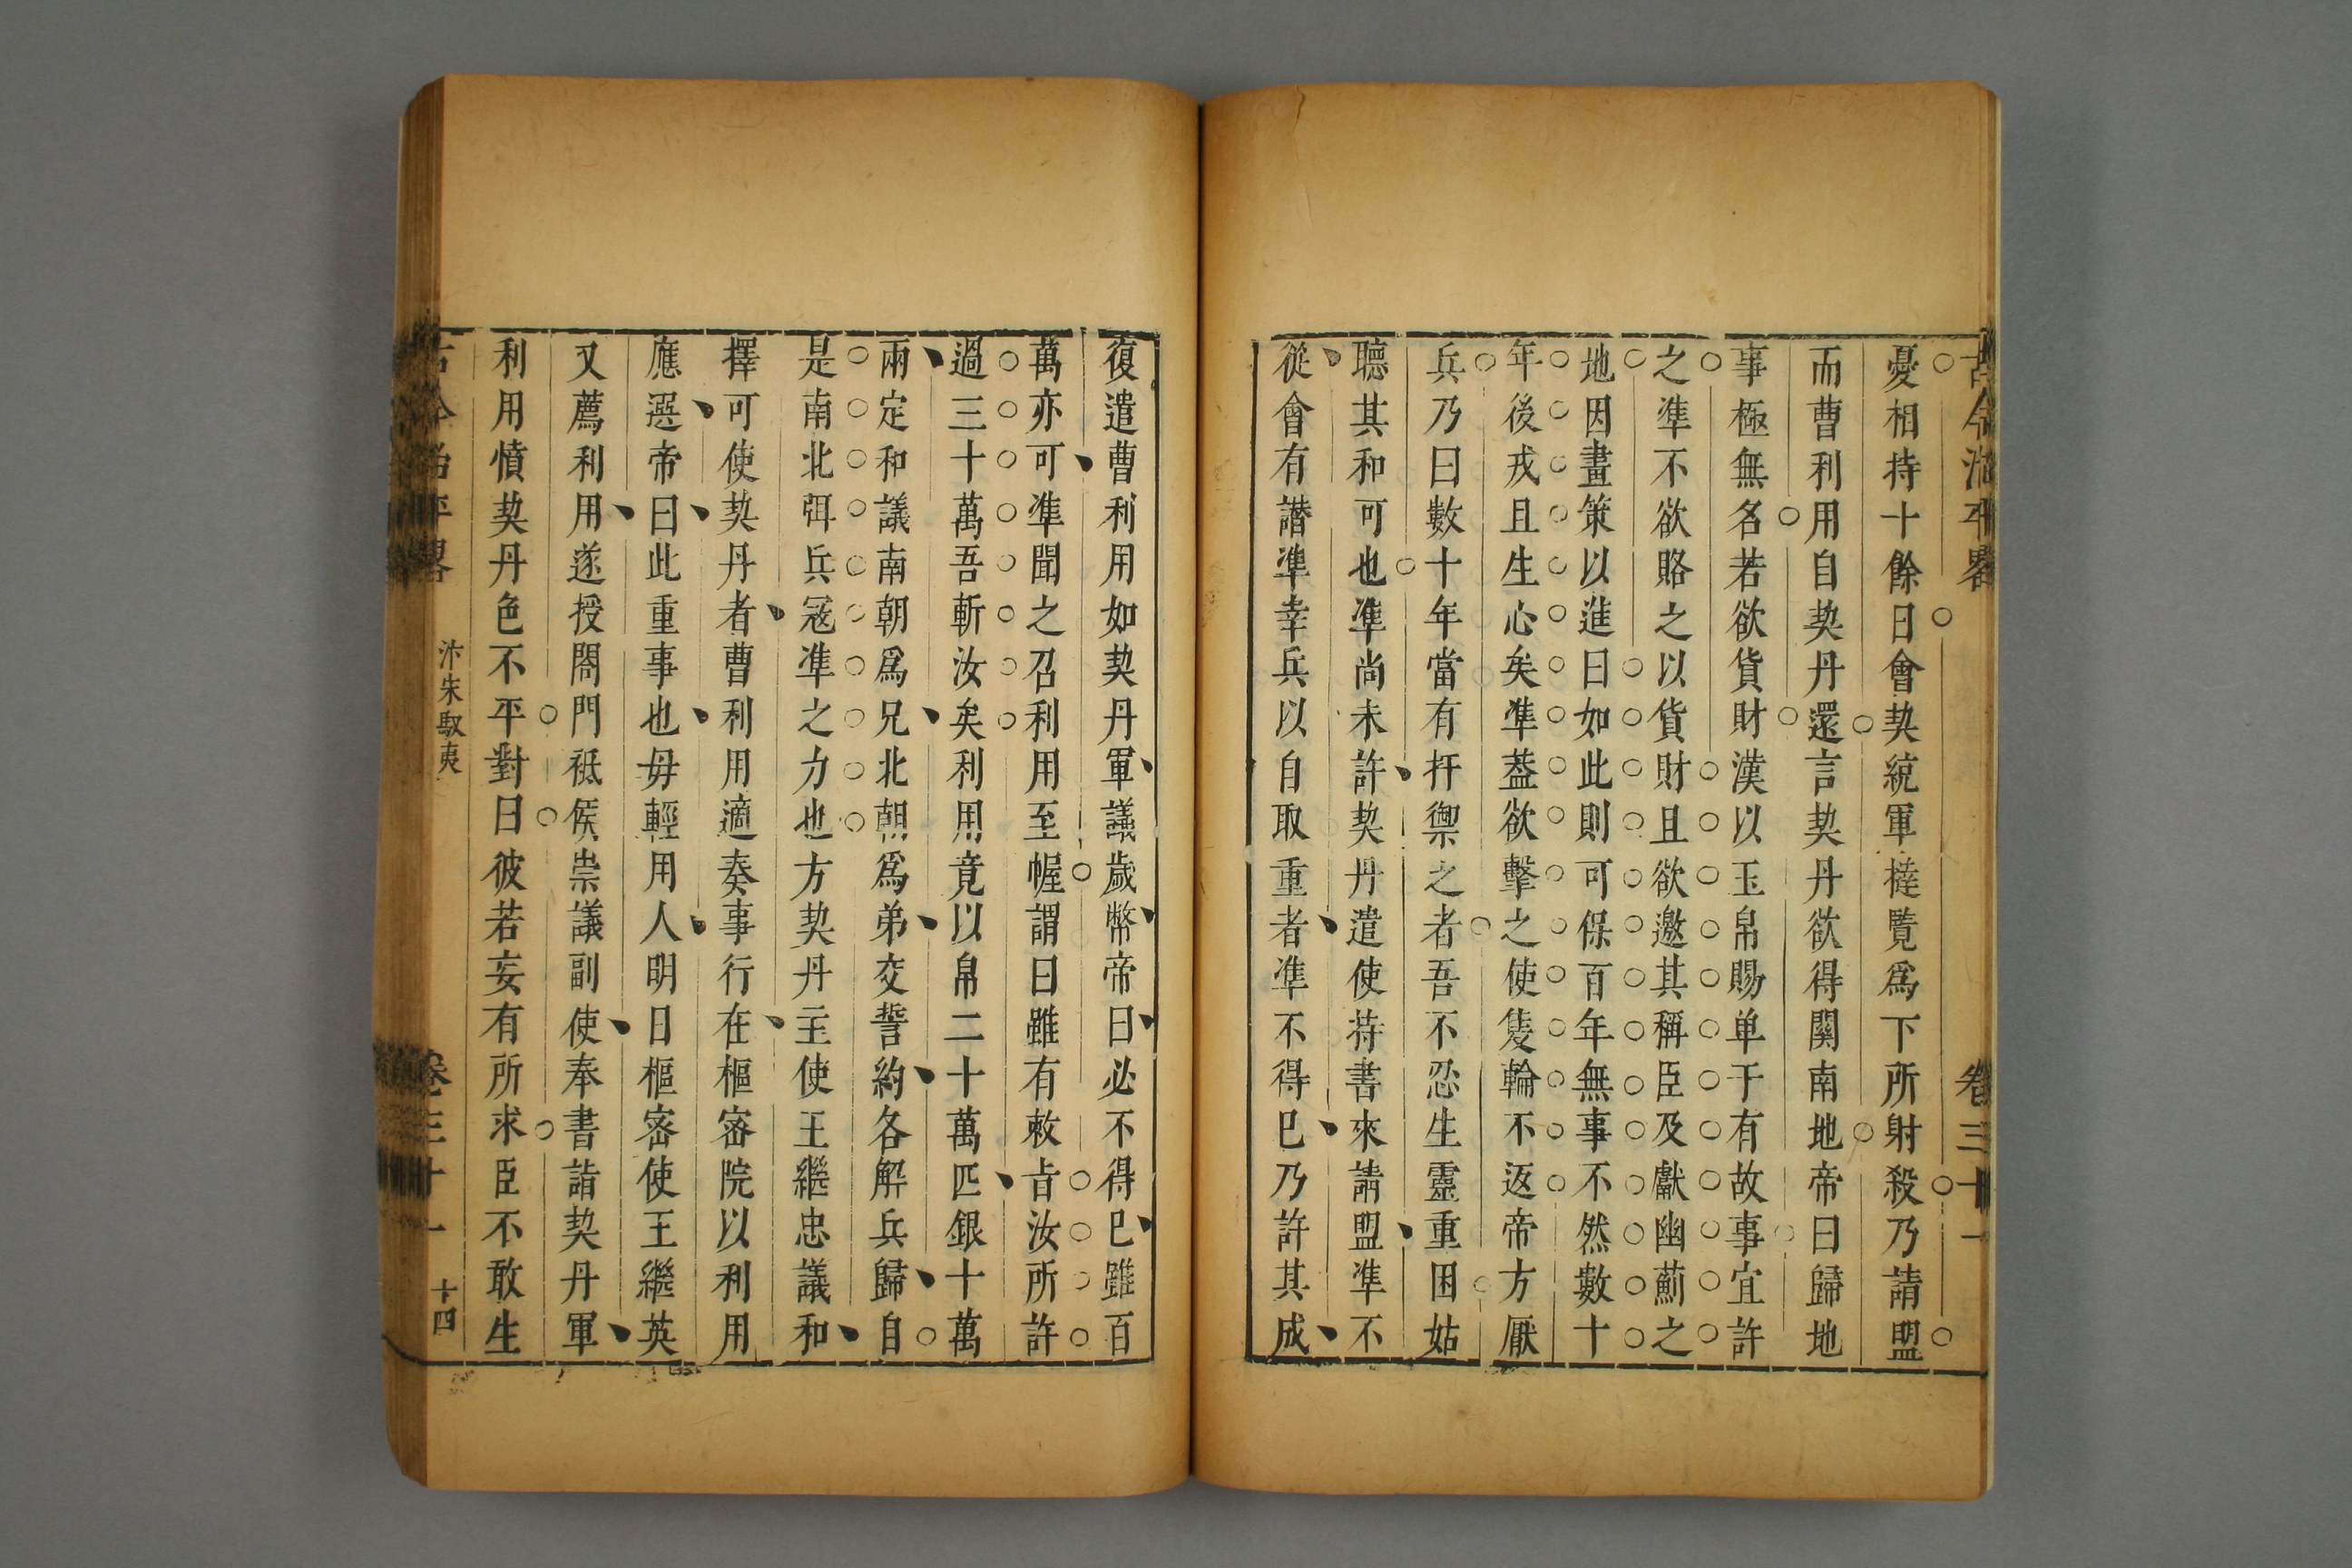 古今治平畧
卷三十一
憂相持十餘日會契統軍撻覽爲下所射殺乃請盟
而曹利用自契丹還言契丹欲得關南地帝曰歸地
事極無名若欲貨財漢以玉帛賜单于有故事宜許
之凖不欲賂之以貨財且欲邀其稱臣及獻幽薊之
地因畫策以進曰如此則可保百年無事不然數十
年後戎且生心矣凖葢欲擊之使隻輪不返帝方厭
兵乃曰數十年當有扞禦之者吾不忍生靈重困姑
聽其和可也凖尚未許契丹遣使持書來請盟凖不
從會有譖凖幸兵以自取重者凖不得已乃許其成
復遣曹利用如契丹軍議歲幣帝曰必不得已雖百
萬亦可凖聞之召利用至幄謂曰雖有敕㫖汝所許
過三十萬吾斬汝矣利用竟以帛二十萬匹銀十萬
兩定和議南朝爲兄北朝爲弟交誓約各解兵歸自
是南北弭兵冦凖之力也方契丹主使王繼忠議和
擇可使契丹者曹利用適奏事行在樞密院以利用
應選帝曰此重事也毋輕用人明日樞密使王繼英
又薦利用遂授閤門祗候崇議副使奉書詣契丹軍
利用憤契丹色不平對曰彼若妄有所求臣不敢生
古今治平畧
汴宋馭夷
卷三十一
十四